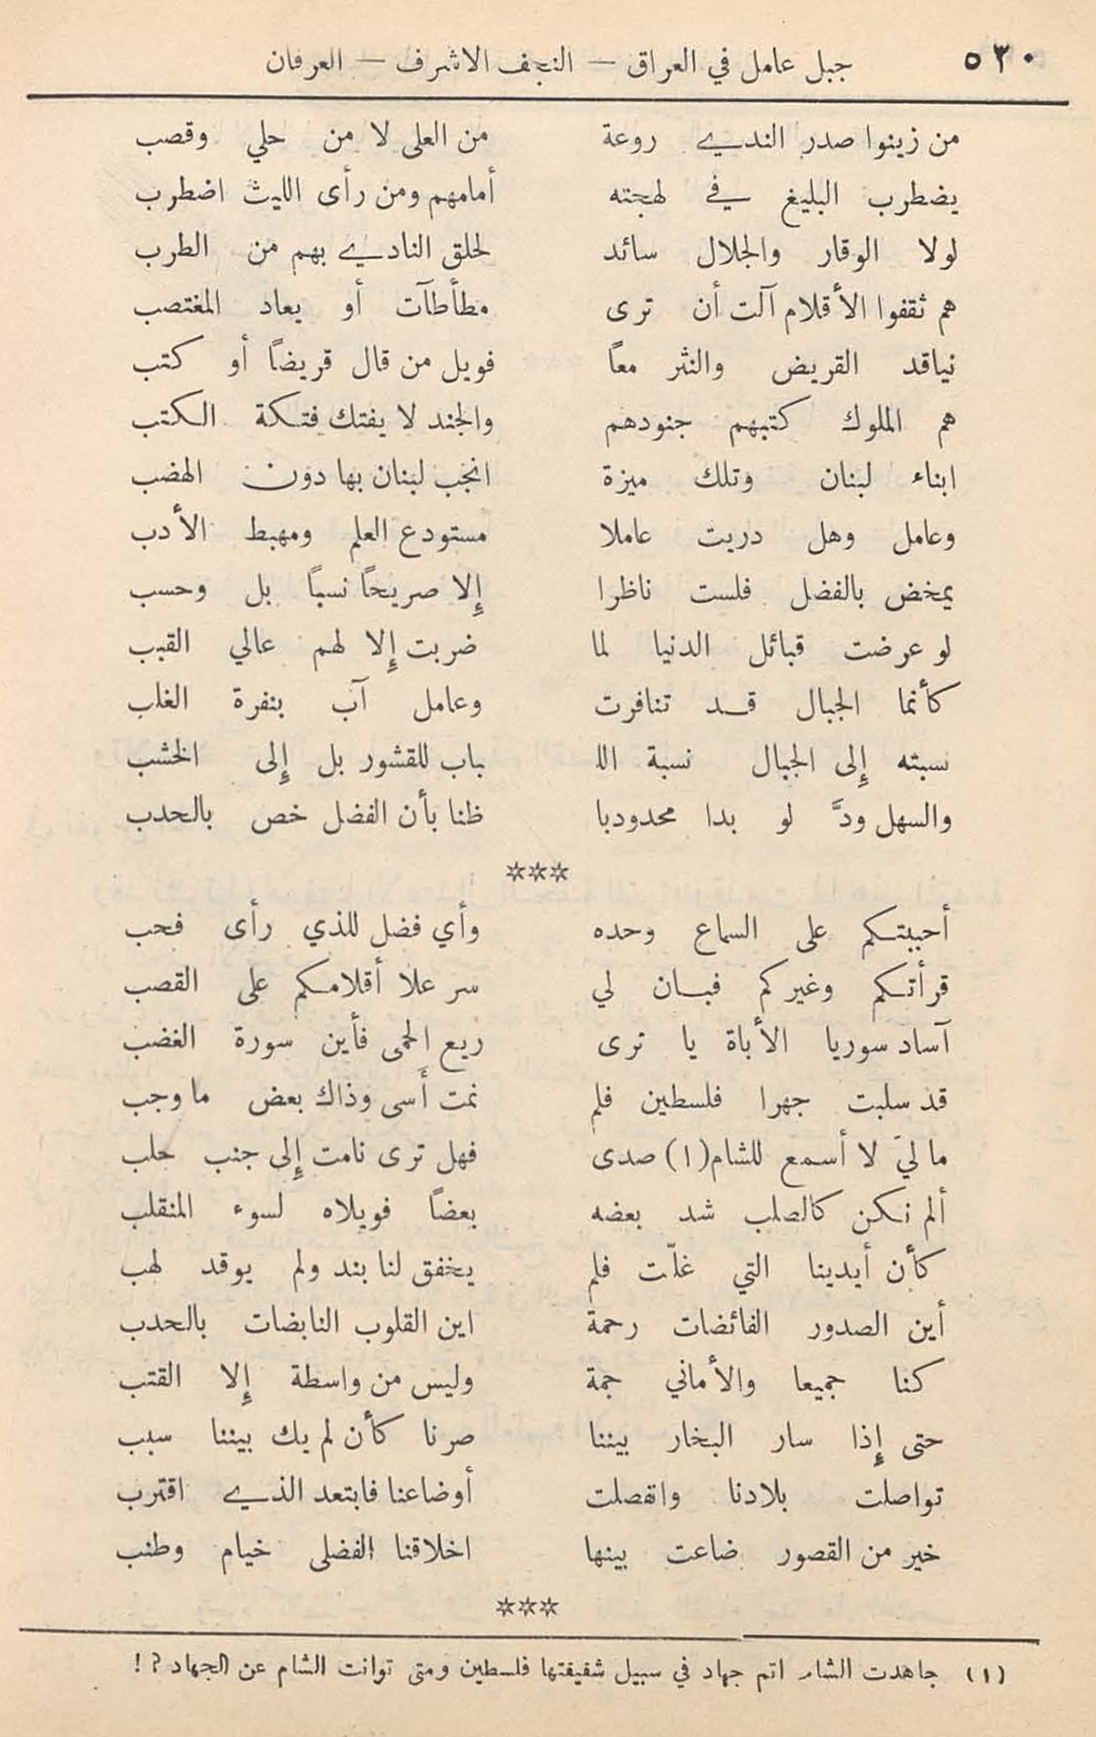 ٥٣٠ جبل عامل في العراق — النجف الاشرف — العرفان
من زينوا صدر الندي روعة من العلى لا من حلي وقصب
يضطرب البليغ في لهجته أمامهم ومن رأى الليث اضطرب
لولا الوقار والجلال سائد لحلق النادي بهم من الطرب
هم ثقفوا الأقلام آلت أن ترى مطأطآت أو يعاد المغتصب
نياقد القريض والنثر معاً فويل من قال قريضاً أو كتب
هم الملوك كتبهم جنودهم والجند لا يفتك فتكة الكتب
ابناء لبنان وتلك ميزة انجب لبنان بها دون الهضب
وعامل وهل دريت عاملا مستودع العلم ومهبط الأدب
يمخض بالفضل فلست ناظرا إلا صريحاً نسباً بل وحسب
لو عرضت قبائل الدنيا لما ضربت إلا لهم عالي القبب
كأنما الجبال قد تنافرت وعامل آب بنفرة الغلب
نسبته إلى الجبال نسبة اللـ باب للقشور بل إلى الخشب
والسهل ودَّ لو بدا محدودبا ظنا بأن الفضل خص بالحدب
***
أحببتكم على السماع وحده وأي فضل للذي رأى فحب
قرأتكم وغيركم فبان لي سر علا أقلامكم على القصب
آساد سوريا الأباة يا ترى ريع الحمى فأين سورة الغضب
قد سلبت جهرا فلسطين فلم نمت أسى وذاك بعض ما وجب
ما ليَ لا أسمع للشام(١) صدى فهل ترى نامت إلى جنب حلب
ألم نكن كالصلب شد بعضه بعضاً فويلاه لسوء المنقلب
كأن أيدينا التي غلّت فلم يخفق لنا بند ولم يوقد لهب
أين الصدور الفائضات رحمة اين القلوب النابضات بالحدب
كنا جميعا والأماني جمة وليس من واسطة إلا القتب
حتى إذا سار البخار بيننا صرنا كأن لم يك بيننا سبب
تواصلت بلادنا وانفصلت أوضاعنا فابتعد الذي اقترب
خير من القصور ضاعت بينها اخلاقنا الفضلى خيام وطنب
***
(١) جاهدت الشام اتم جهاد في سبيل شقيقتها فلسطين ومتى توانت الشام عن الجهاد ? !